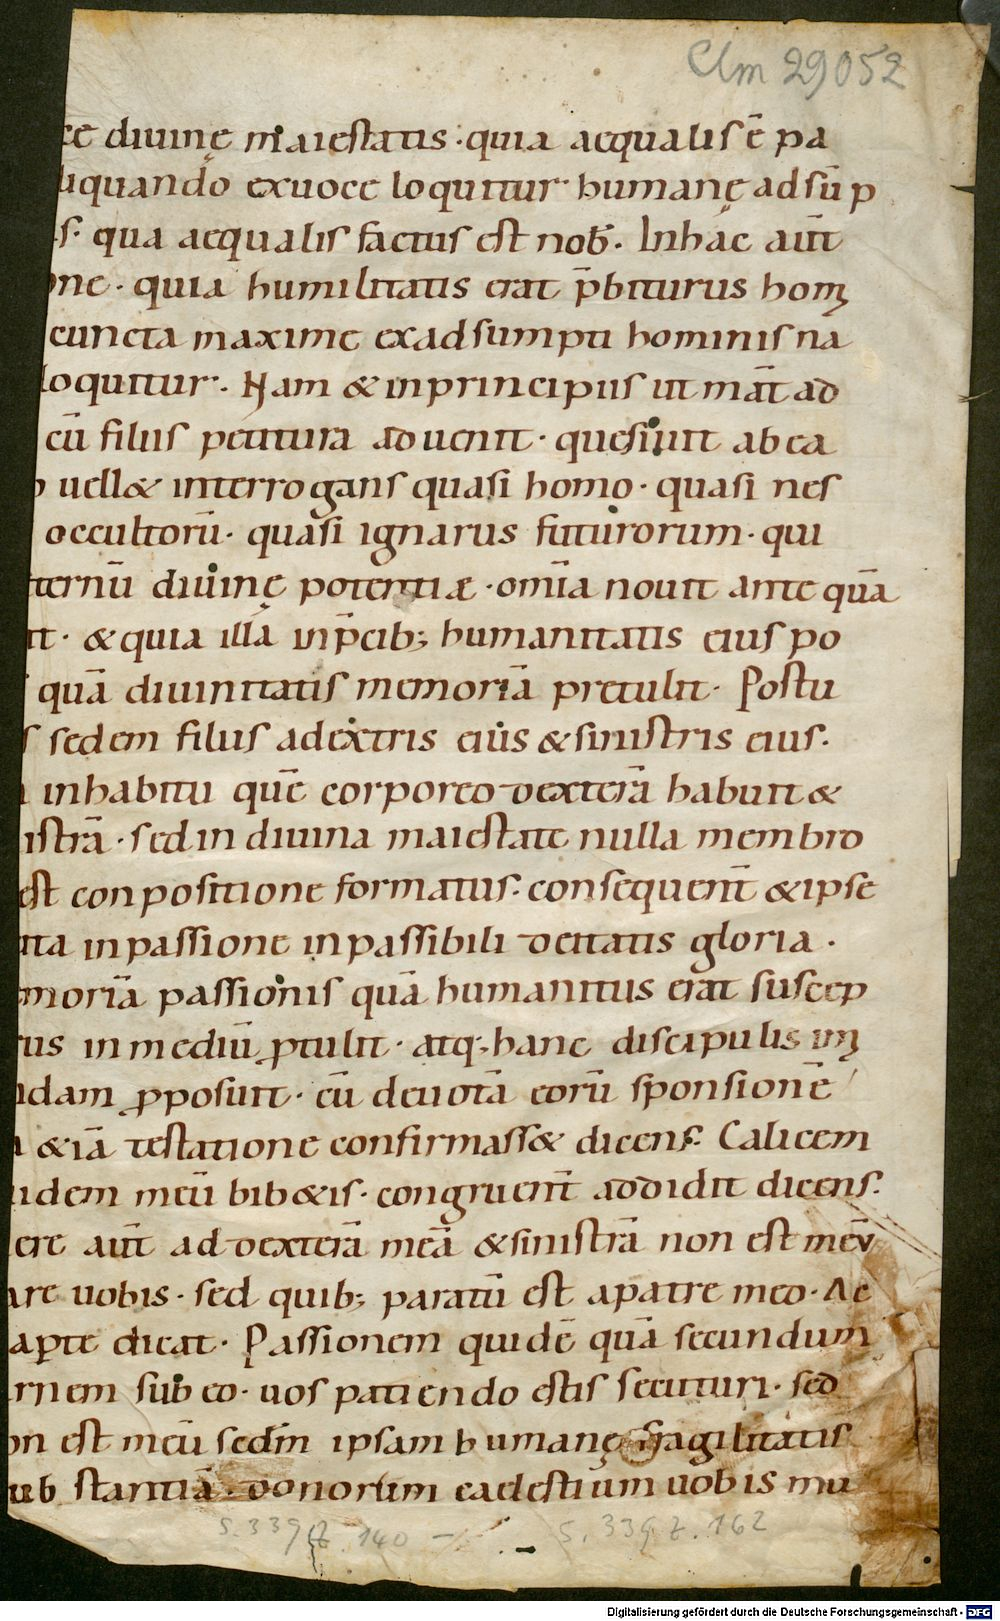 Clm 29052
ce diuinę maiestatis · quia aequalis ē pa
liquando ex uoce loquitur humanę adsūp
s · qua aequalis factus est nob̄ · In hac aūt
one · quia humilitatis erat p̄biturus hom
cuncta maxime ex adsumpti hominis na
loquitur · Nam & in principiis ut māt ad
cū filiis petitura aduenit · quesiuit ab ea
uell& interrogans quasi homo · quasi nes
occultorū · quasi ignarus futurorum · qui
ternū diuinę potentiæ · om̄ia nouit ante quā
it · & quia illā in p̄cib; humanitatis eius po
quā diuinitatis memoriā pretulit · Postu
s sedem filiis a dextris eius & sinistris eius ·
in habitu quē corporeo dexterā habuit &
istrā · sed in diuina maiestate nulla membro
est conpositione formatus · consequent̄ & ipse
ita in passione inpassibili deitatis gloria ·
moriā passionis quā humanitus erat suscep
rus in mediū ptulit · atq; hanc discipulis im
ndam pposuit · cū deuotā eorū sponsionē
& iā testatione confirmass& dicens · Calicem
uidem meū bib&is · congruent̄ addidit dicens ·
ere aūt ad dexterā meā & sinistrā non est meū
are uobis · sed quib; paratū est a patre meo · Ac
apte dicat · Passionem quidē quā secundum
rnem subeo · uos patiendo estis secuturi · sed
on est meū sedm̄ ipsam humanę fragilitatis
ub stantiā · donorum caelestium uobis mu
S. 339 Z. 140 – S. 339 Z. 162
Digitalisierung gefördert durch die Deutsche Forschungsgemeinschaft - DFG